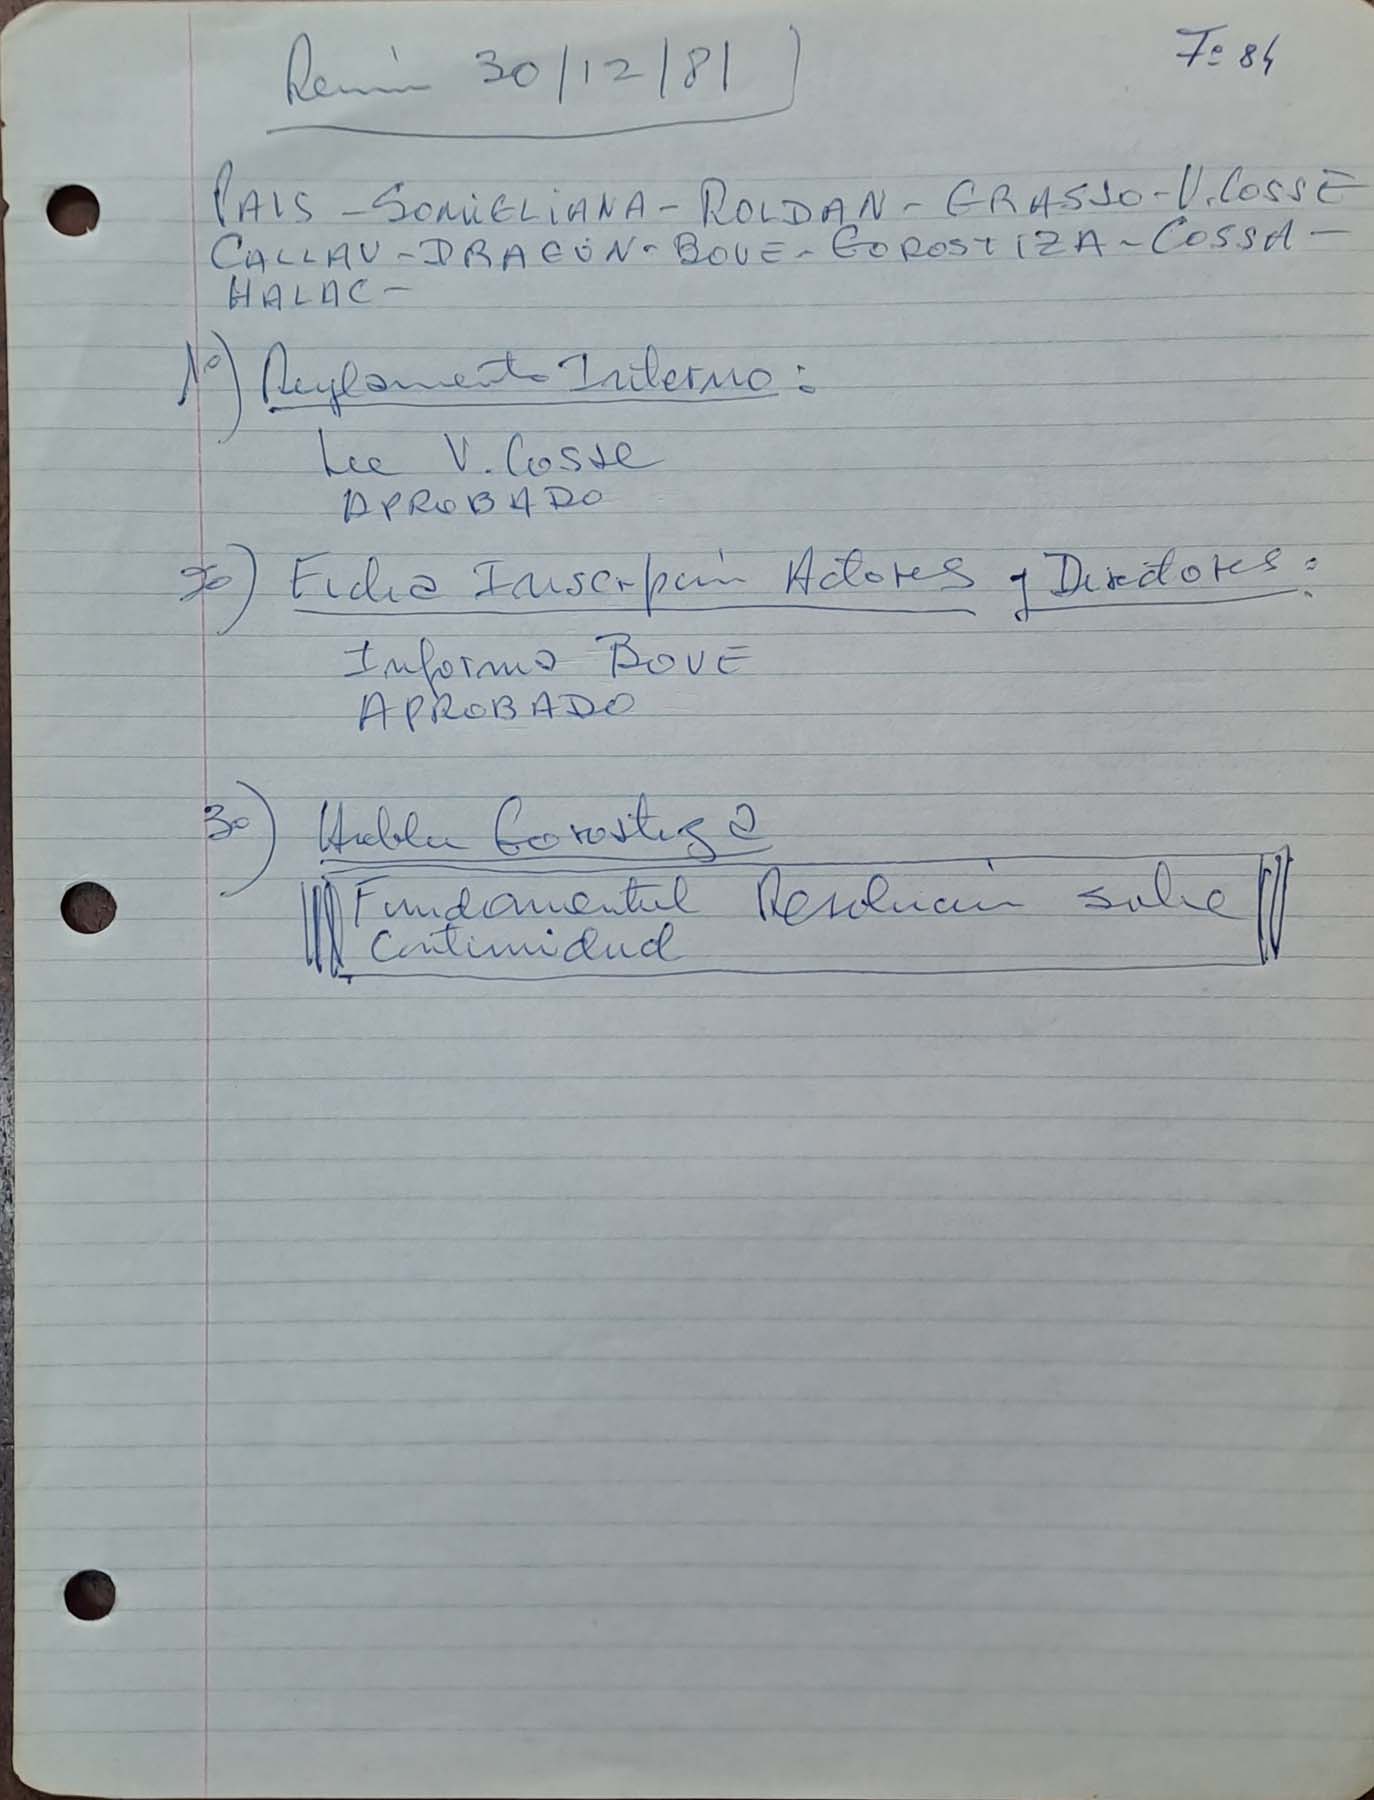 Reunión 30/12/81
Fº 84
PAIS - SOMIGLIANA - ROLDAN - GRASSO - V. COSSE
CALLAU - DRAGÚN - BOVE - GOROSTIZA - COSSA -
HALAC -
1º) Reglamento Interno:
Lee V. Cosse
APROBADO
2º) Ficha Inscripción Actores y Directores:
Informa BOVE
APROBADO
3º) Habla Gorostiza
Fundamental Resolución sobre
Continuidad